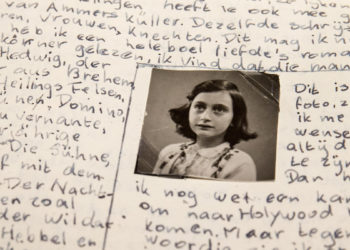 van Ammers Küller. Dezelfde schrij
ren, Vrouwen, Knechten. Dit mag ik
heb ik een heleboel liefde's roma
körner gelezen, ik vind dat die man
Hedwig, der
aus Bremen
Heiligs Felsen,
Domino,
vernante,
jährige
Die Sühne,
f mit dem
Der Nacht-
en zoal
der Wildar
Hebbel en
Dit is
foto, z
ik me
wensen
altijd
te zijn
Dan
ik nog wel een kan
om naar Holywood
komen. Maar tegen
woordig